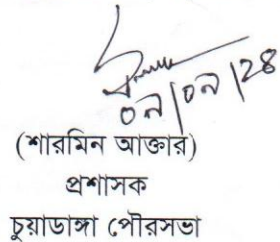 ০৯/০৯/২৪
(শারমিন আক্তার)
প্রশাসক
চুয়াডাঙ্গা পৌরসভা